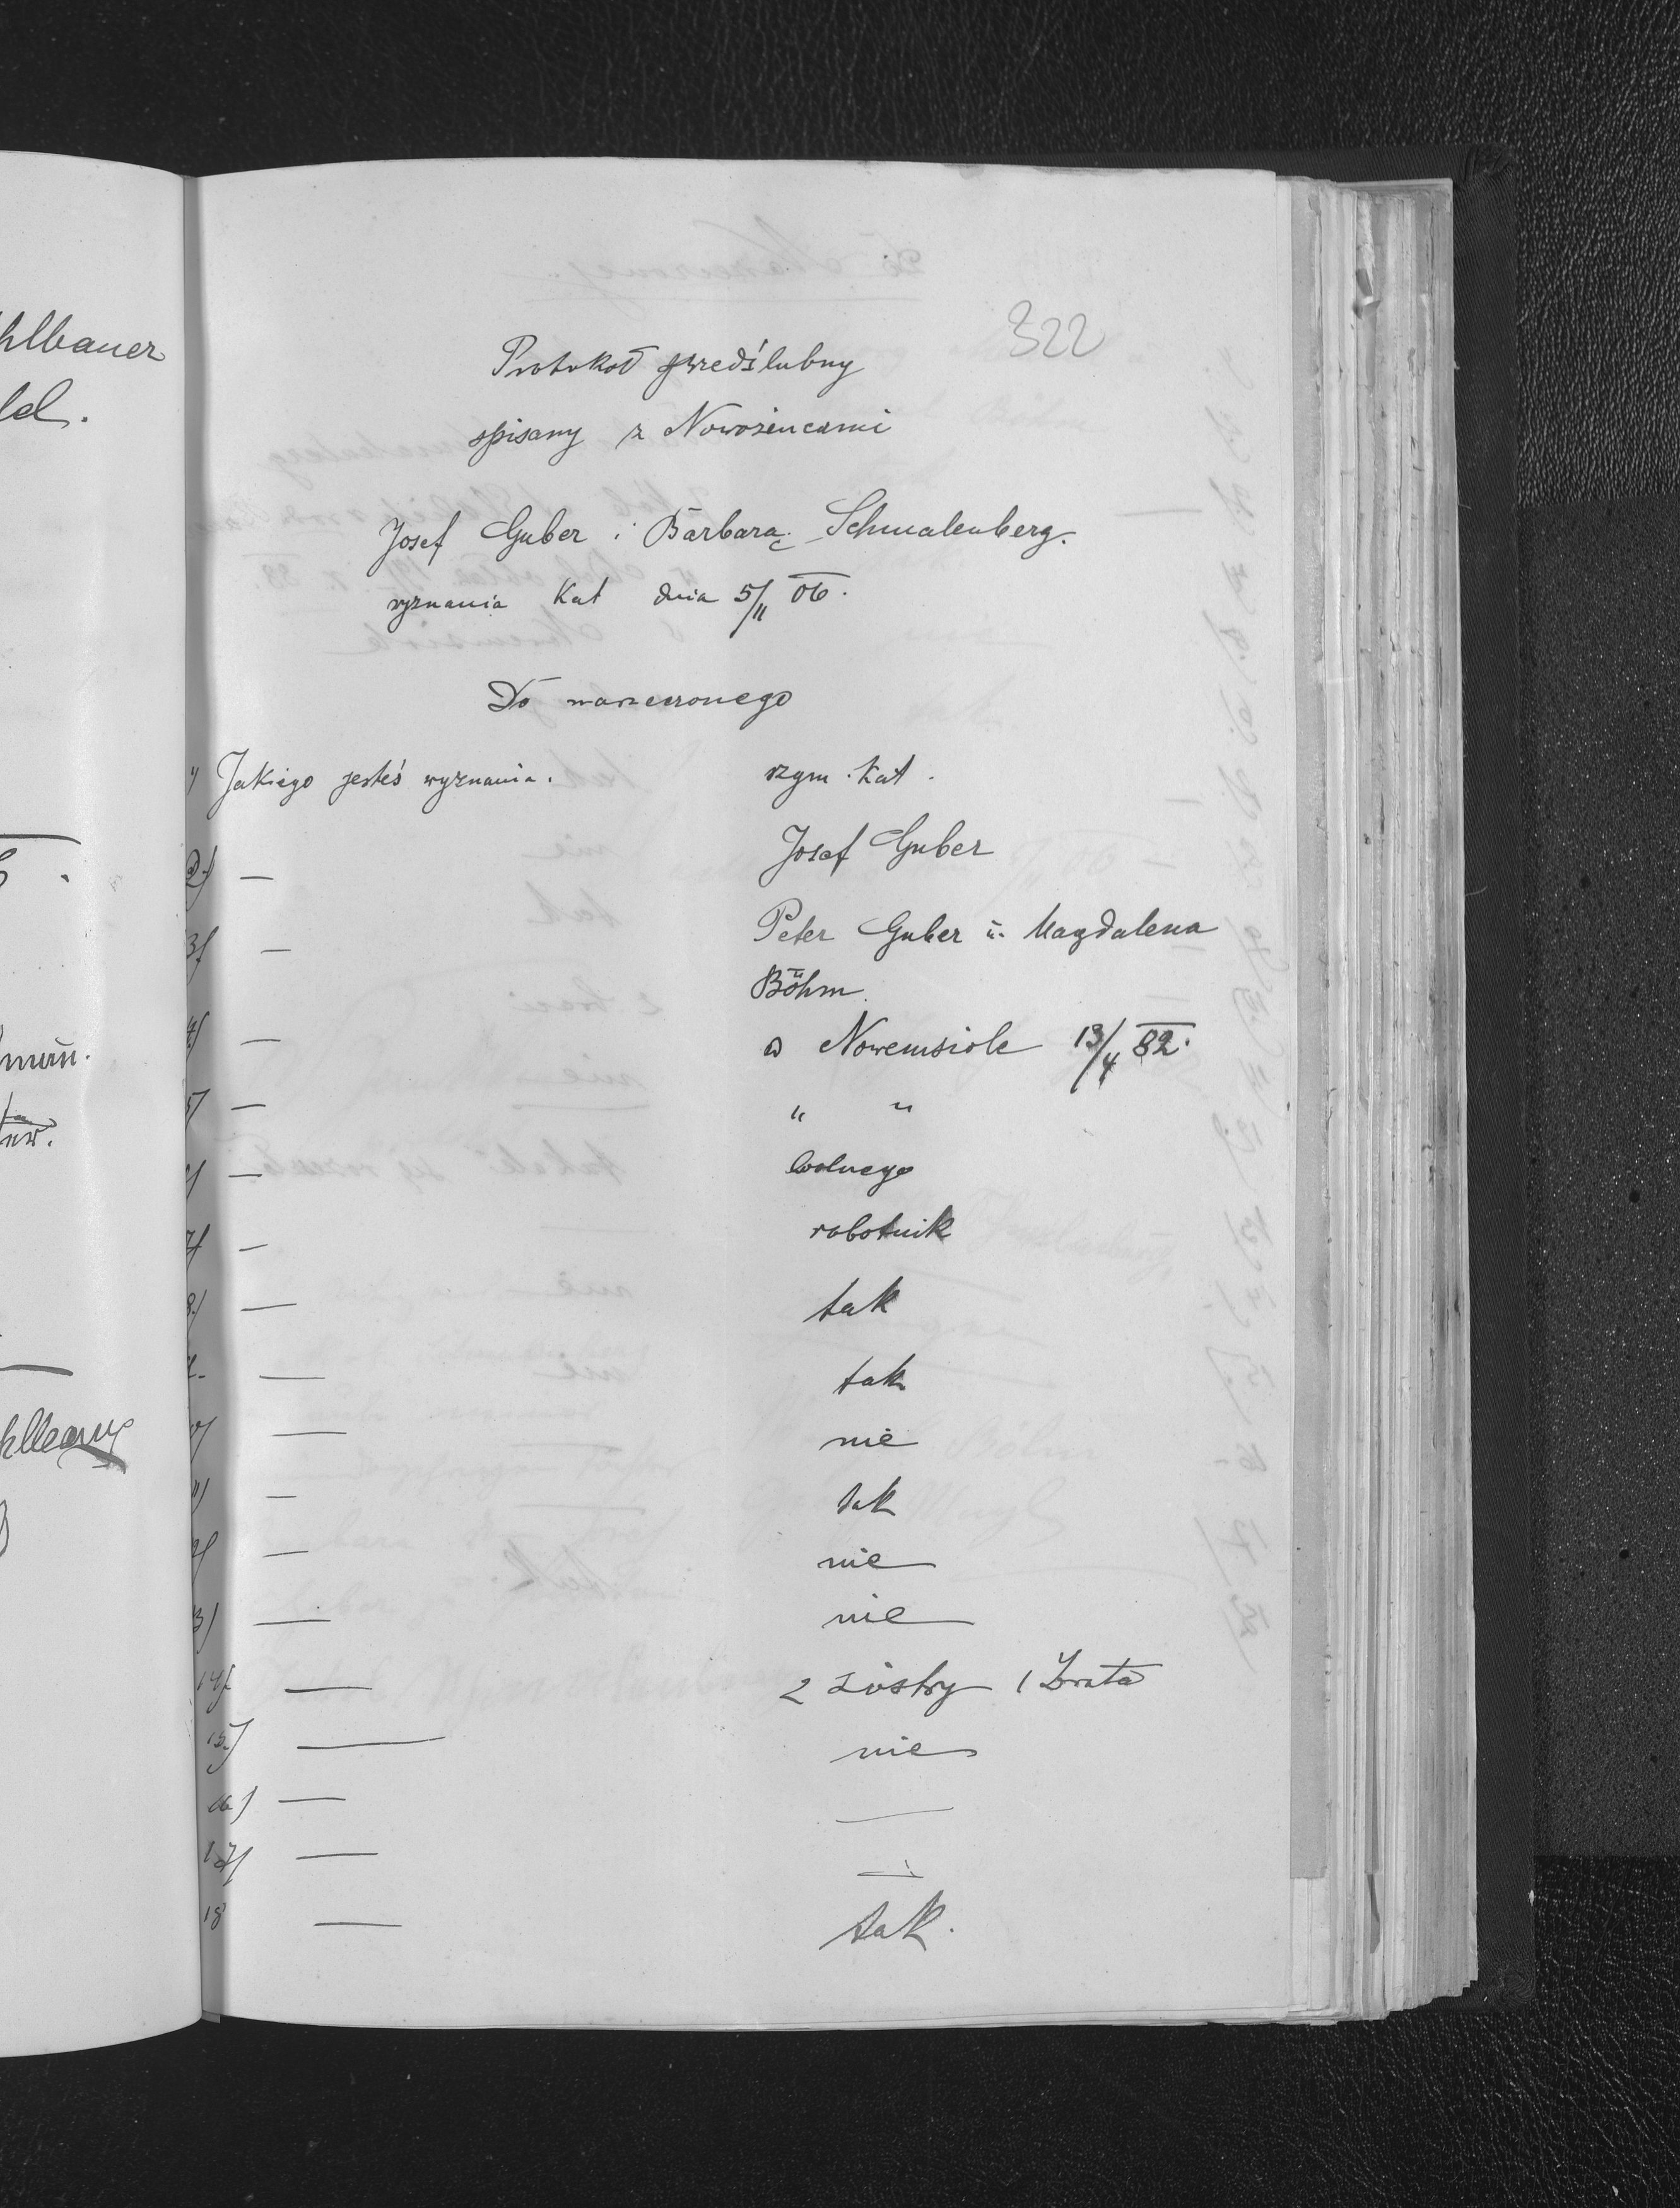 hlbauer
322
Protokoł przedślubny
spisany z Nowożeńcami
Josef Guber i Barbarą Schmalenberg.
wyznania Kat dnia 5/11 06.
Do narzeczonego
1) Jakiego jesteś wyznania. rzym. Kat.
2) — Josef Guber
3) — Peter Guber u. Magdalena
Böhm
4) — w Nowemsiole 13/4 82.
5) — " "
6) — wolnego
7) — robotnik
8.) — tak
9. — tak
10) — nie
11) — tak
12) — nie
13) — nie
14) — 2 siostry 1 brata
15.) — nie
16) — —
17) — —
18 — tak.